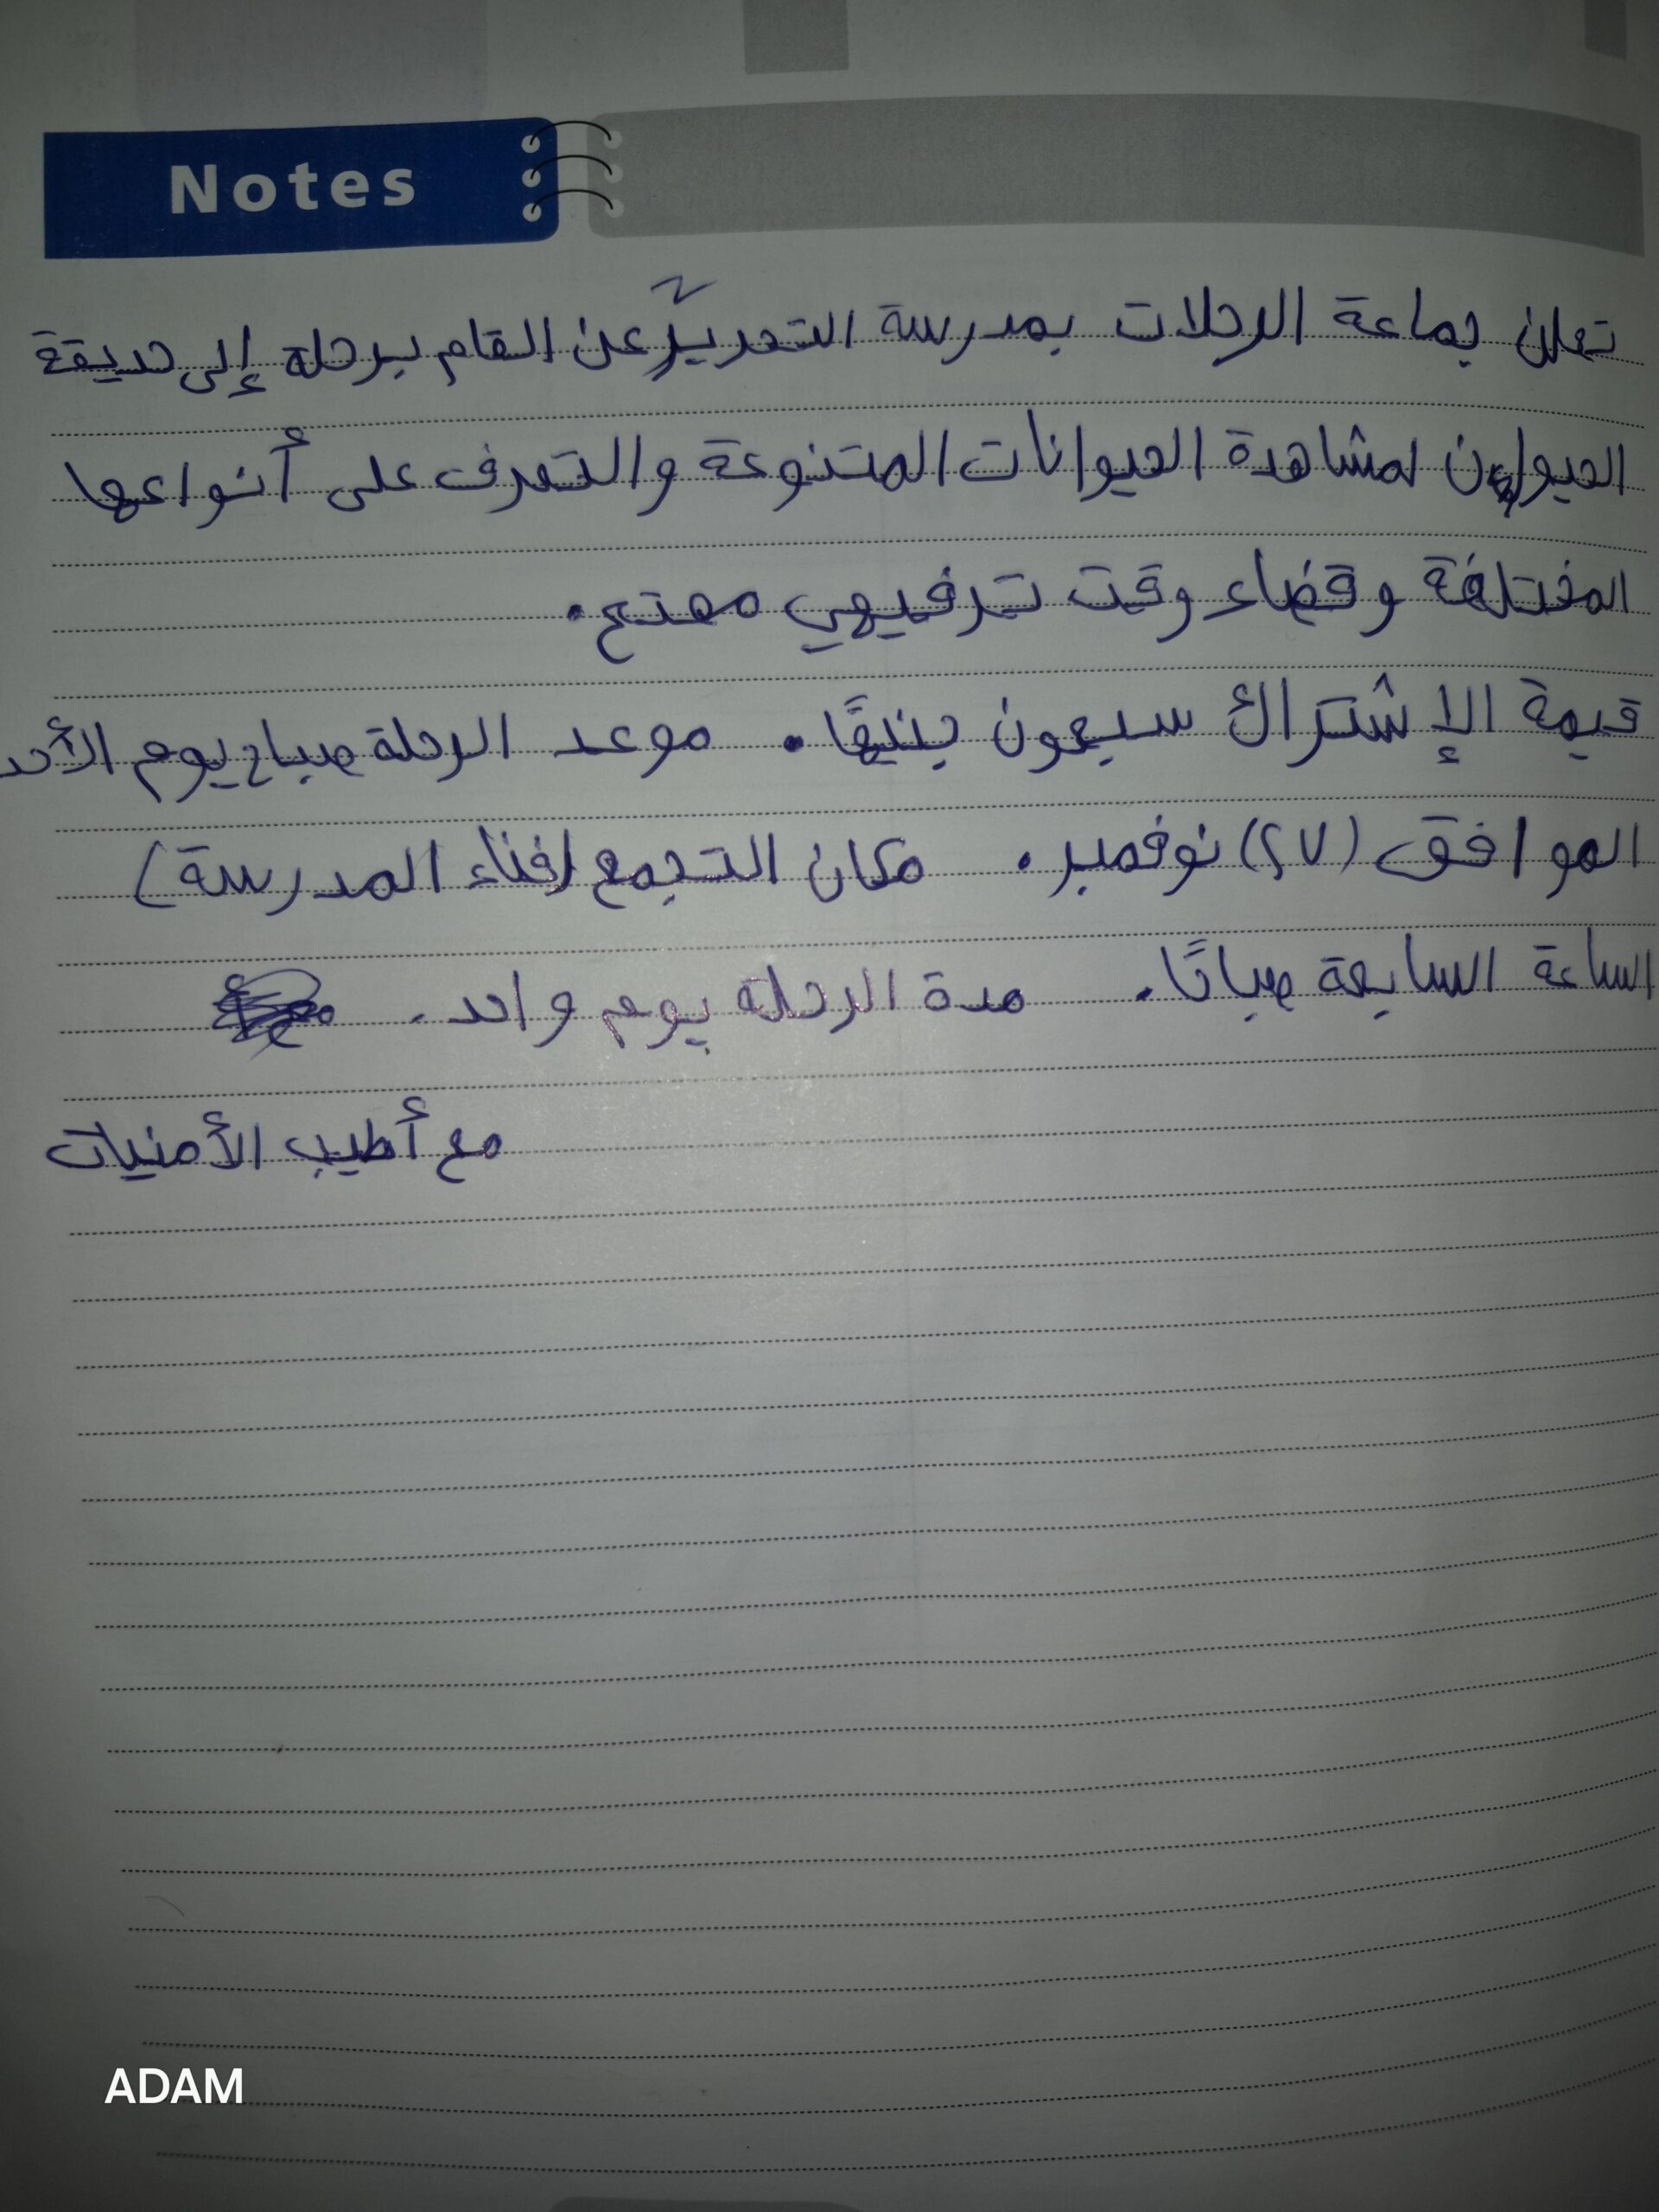 Notes
تعلن جماعة الرحلات بمدرسة التحرير عن القام برحلة إلى حديقة
الحيوان لمشاهدة الحيوانات المتنوعة والتعرف على أنواعها
المختلفة وقضاء وقت ترفيهي ممتع.
قيمة الإشتراك سبعون جنيهًا. موعد الرحلة صباح يوم الأحد
الموافق (٢٧) نوفمبر. مكان التجمع (فناء المدرسة)
الساعة السابعة صباحًا. مدة الرحلة يوم واحد.
مع أطيب الأمنيات
ADAM